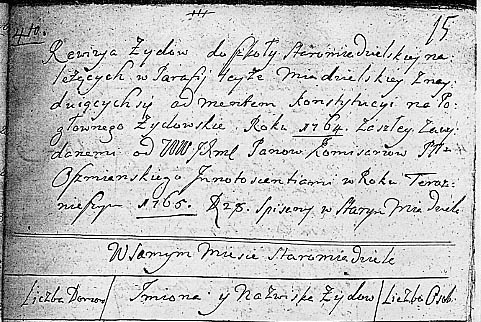 410. 15
Rewizya Żydow do szkoły Staromiadzielskiey na:
leżących w Parafij teyże Miadzielskiey Znay:
duiących się ad mentem konstytucyi na Po:
głownego Żydowskie Roku 1764. Zaszłey Zawy:
danemi od WW Jchmł Panow Kommisarzow Pttu
Oszmianskiego Innotescentiami w Roku Teraz:
nieyszym 1765. spisany w Starym Miadziele
W Samym Miescie Staromiadziele
Liczba Domow Imiona y Nazwiska Żydow Liczba Osob